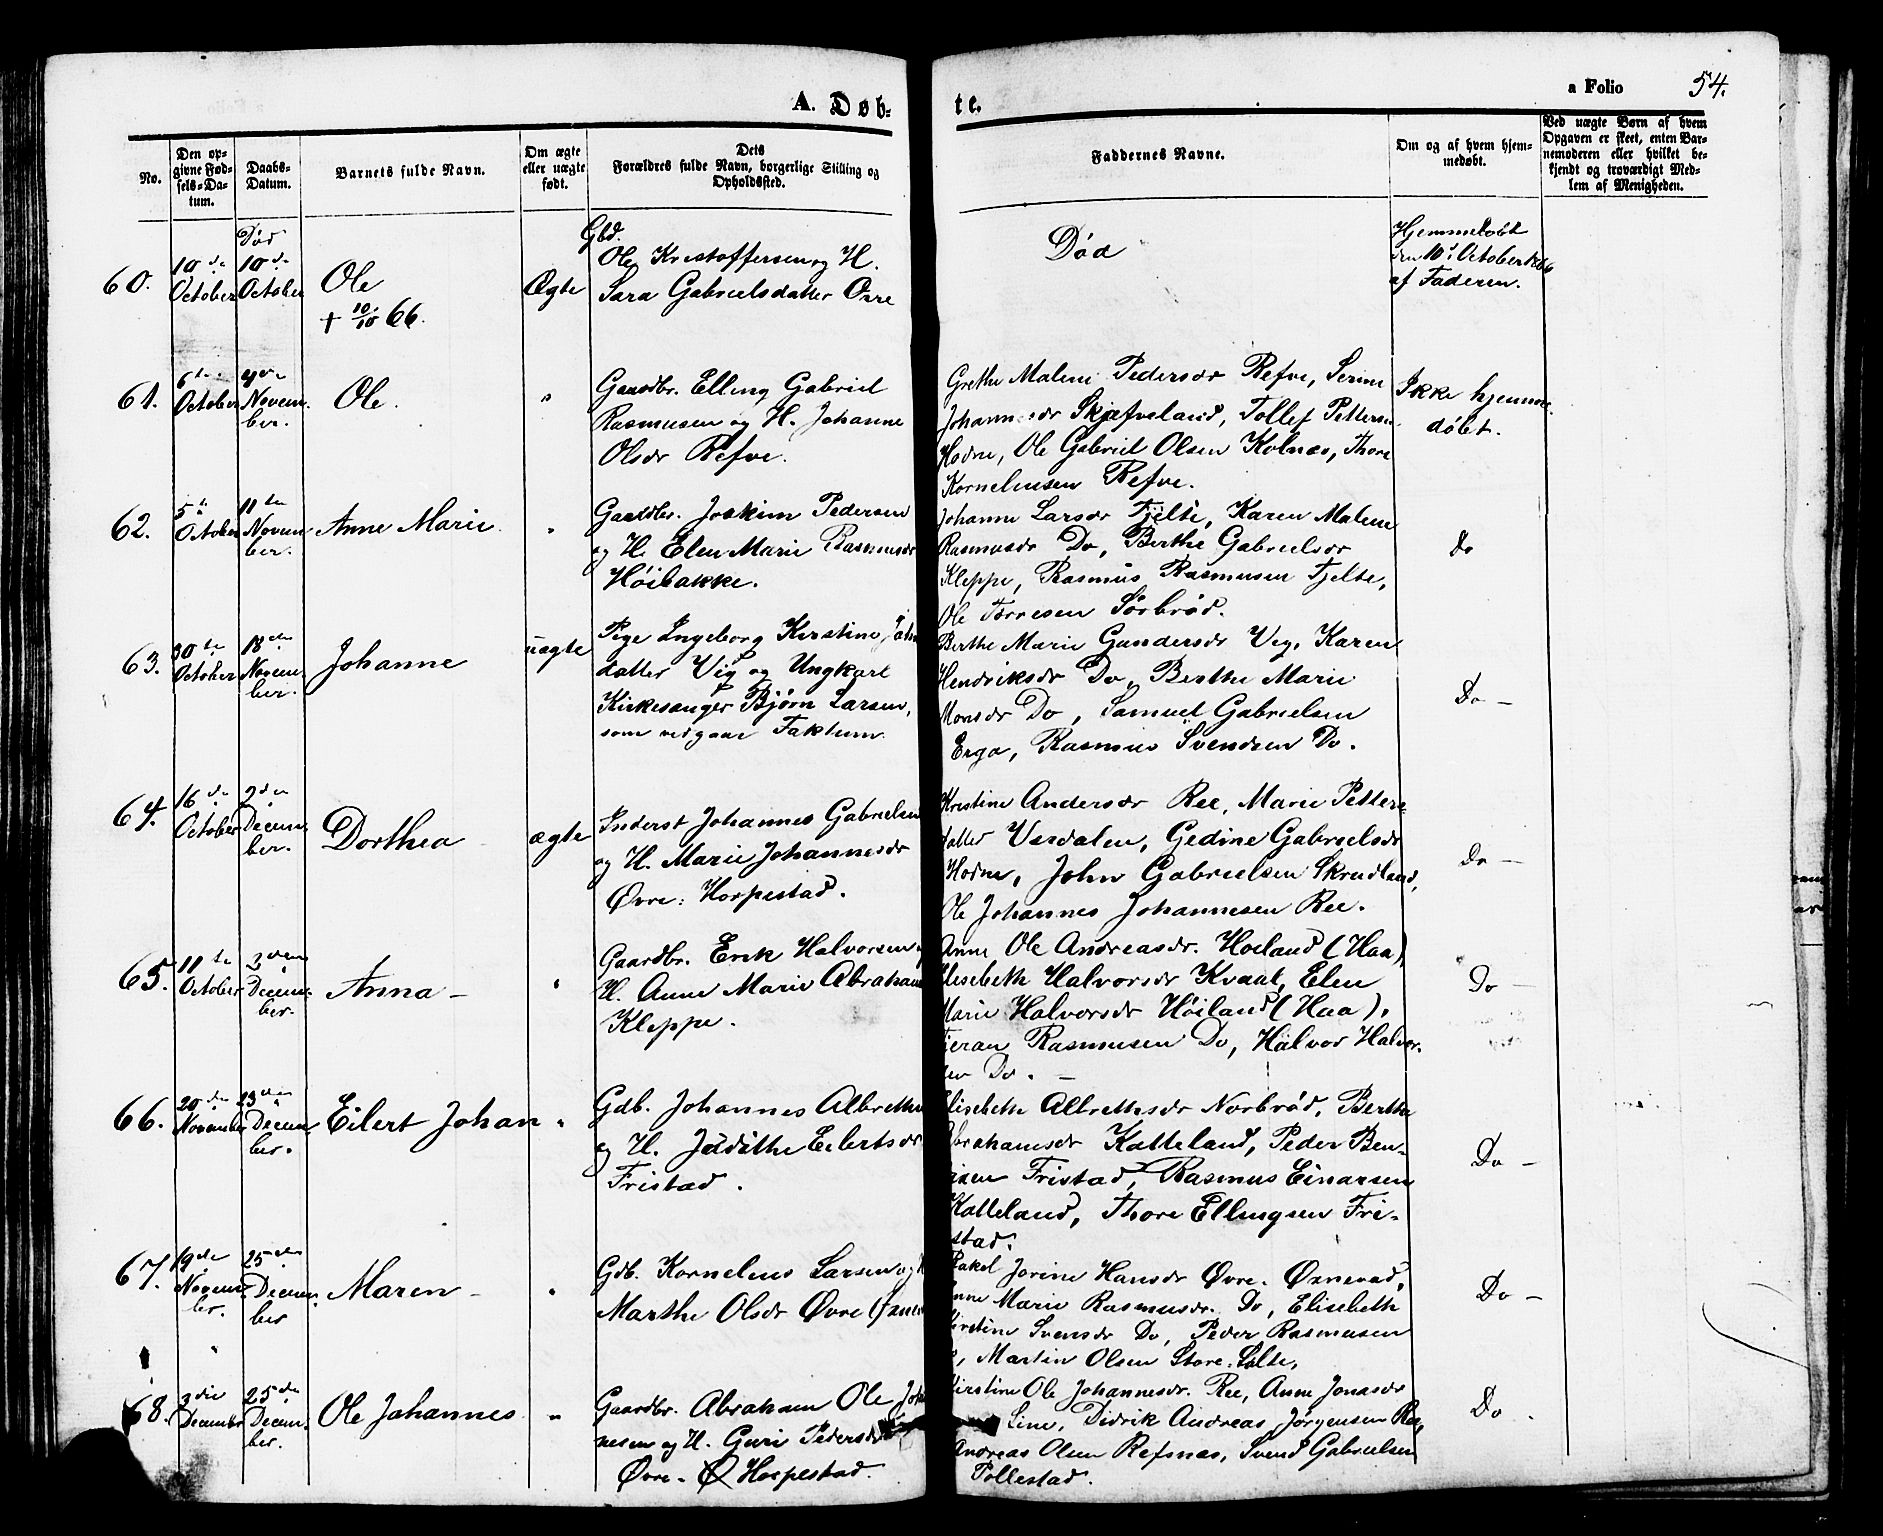 A. Døb-
te.
a Folio 54.
No.
Den op-
givne Fød-
sels-Da-
tum.
Daabs-
Datum.
Barnets fulde Navn.
Om ægte
eller uægte
født.
Dets
Forældres fulde Navn, borgerlige Stilling og
Opholdssted.
Faddernes Navne.
Om og af hvem hjem-
medøbt.
Ved uægte Børn af hvem
Opgaven er skeet, enten Bar-
nemoderen eller hvilket be-
kjendt og troværdigt Med-
lem af Menigheden.
60.
10de
October
Død
10de
October
Ole
+ 10/10 66.
Ægte
Gbd.
Ole Kristoffersen og H.
Sara Gabrielsdatter Orre
Død
Hjemmedøbt
den 10d October 1866
af Faderen.
61.
6te
October
4de
Novem-
ber.
Ole.
"
Gaardbr. Elling Gabriel
Rasmusen og H. Johanne
Olsdr Refve.
Grethe Malene Pedersdr Refve, Serine
Johannesdr Skjæfveland, Tollef Pettersen
Hodne, Ole Gabriel Olsen Kolnæs, Thore
Korneliussen Refve.
Ikke hjemme-
døbt.
62.
5te
October
11te
Novem-
ber.
Anne Marie
"
Gaardbr. Joakim Pedersen
og H. Elen Marie Rasmusdr
Höibakke.
Johanne Larsdr Fjelte, Karen Malene
Rasmusdr Do, Berthe Gabrielsdr
Kleppe, Rasmus Rasmusen Fjelte,
Ole Torresen Sörbröd.
Do
63.
30te
October
18de
Novem-
ber.
Johanne
uægte
Pige Ingeborg Kirstine
datter Vig og Ungkarl
Kirkesanger Bjørn Larsen,
som vedgaar Faktum.
Berthe Marie Gundersdr Vig, Karen
Hendriksdr Do, Berthe Marie
Monsdr Do, Samuel Gabrielsen
Erga, Rasmus Svendsen Do.
Do -
64.
16de
October
2den
Decem-
ber.
Dorthea
ægte
Inderst Johannes Gabrielsen
og H. Marie Johannesdr
Øvre: Horpestad.
Kristine Andersdr Ree, Marie Petters-
datter Verdalen, Gedine Gabrielsdr
Hodne, John Gabrielsen Skrudland,
Ole Johannes Johannesen Ree.
Do -
65.
11te
October
2den
Decem-
ber.
Anna -
"
Gaardbr. Erik Halvorsen og
H. Anne Marie Abrahams
Kleppe.
Anne Ole Andreasdr. Hoiland (Haa),
Elisebeth Halvorsdr Kvaal, Elen
Marie Halvorsdr Höiland (Haa),
Rasmusen Do, Halvor Halvor-
sen Do. -
Do -
66.
20de
November
23den
Decem-
ber.
Eilert Johan
"
Gdb. Johannes Albrethsen
og H. Jödithe Eilertsdr
Fristad.
Elisebeth Albrethsdr Norbröd, Berthe
Abrahamsdr Katteland, Peder Ben-
Fristad, Rasmus Einarsen
Katteland, Thore Ellingsen Fri-
stad.
Do -
67.
19de
Novem-
ber.
25de
Decem-
ber
Maren -
"
Gdb. Kornelius Larsen og H
Marthe Olsdr Øvre
Rakel Jorine Hansdr Øvre. Øxnevad,
Anne Marie Rasmusdr. Do, Elisebeth
Kirstine Svensdr Do, Peder Rasmusen
Martin Olsen Store-Salte,
Do -
68.
3die
December
25de
Decem-
ber.
Ole Johannes
"
Gaardbr. Abraham Ole Joha
nesen og H. Guri Pedersdr
Øvre - Horpestad.
Kirstine Ole Johannesdr. Ree, Anne Jonasdr
Line, Didrik Andreas Jørgensen Ree,
Andreas Olsen Refsnæs, Svend Gabrielsen
Pollestad.
Do